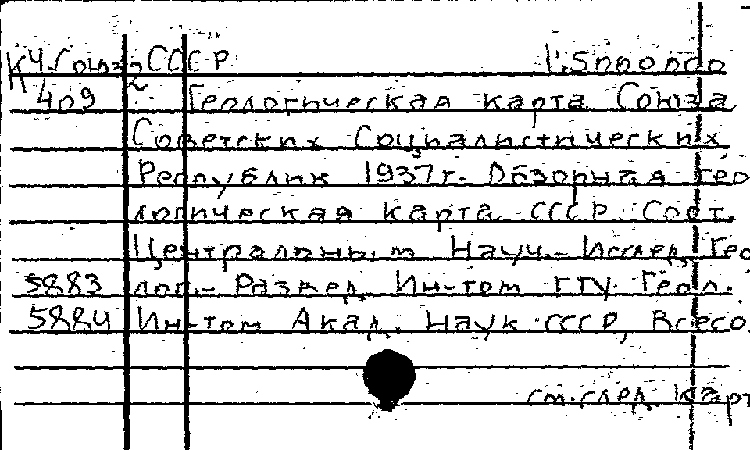 К 4. Союз СССР 1:5000000
409 Геологическая карта Союза
Советских Социалистических
Республик 1937г. Обзорная гео
логическая карта СССР. Сост.
Центральным Науч.-Исслед. Гео
5883 лог.- Развед. Ин-том ГГУ. Геол.
5884 Ин-том Акад. Наук СССР, Всесо.
см. след. карт